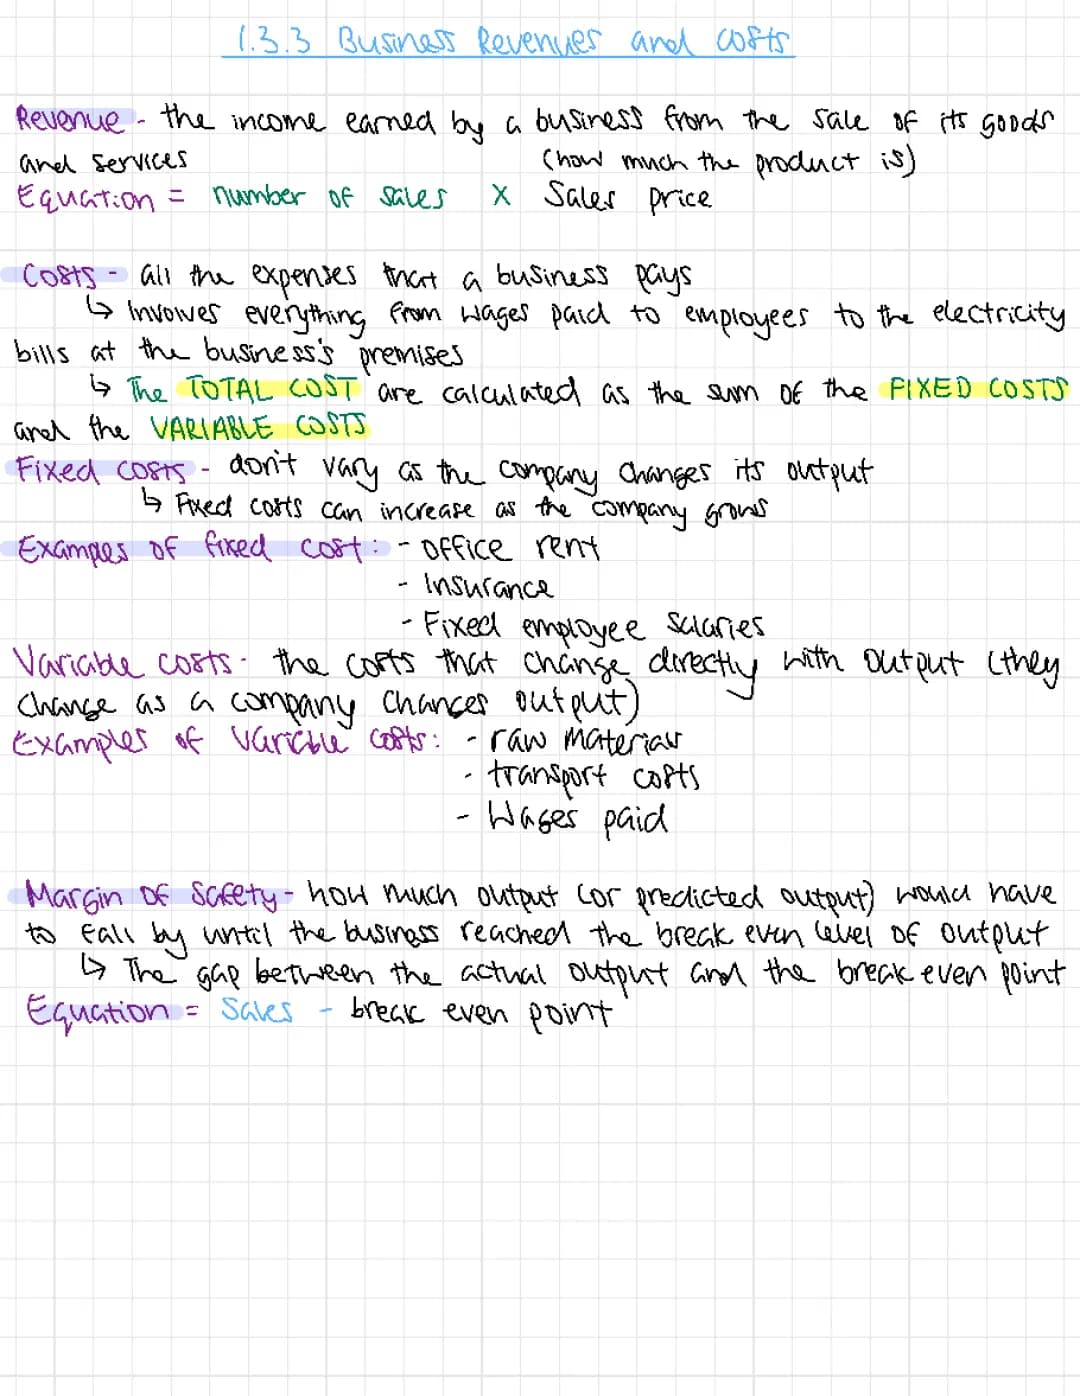 1.3.3 Business Revenues and costs
Revenue - the income earned by a business from the sale of its goods
and services (how much the product is)
Equation = number of sales x Sales price
Costs - all the expenses that a business pays
↳ Involves everything from wages paid to employees to the electricity
bills at the business's premises
↳ The TOTAL COST are calculated as the sum of the FIXED COSTS
and the VARIABLE COSTS
Fixed costs - don't vary as the company changes its output
↳ Fixed costs can increase as the company grows
Examples of fixed cost: - office rent
- Insurance
- Fixed employee salaries
Variable costs - the costs that change directly with output (they
change as a company chances output)
Examples of variable costs: - raw materials
- transport costs
- Wages paid
Margin of Safety - how much output (or predicted output) would have
to fall by until the business reached the break even level of output
↳ The gap between the actual output and the break even point
Equation = Sales - break even point